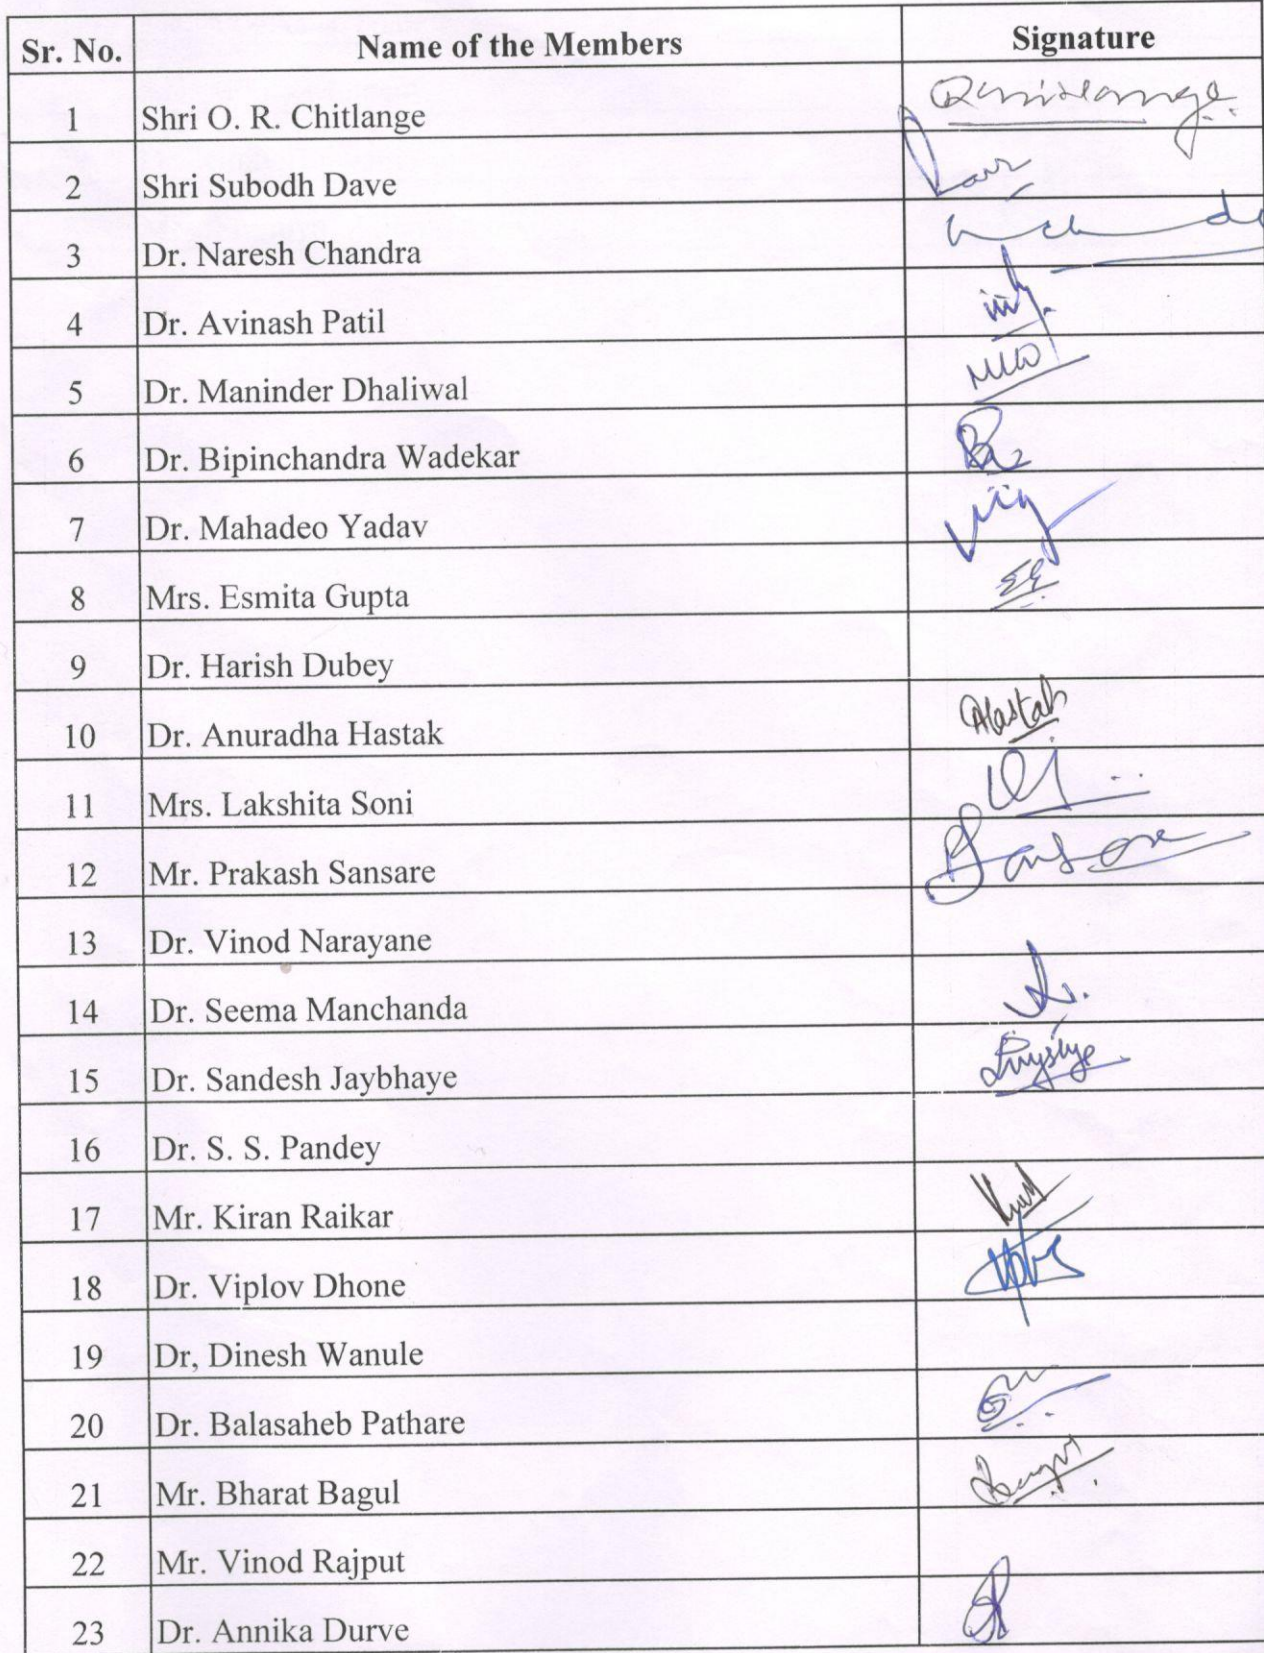 Sr. No. Name of the Members Signature
1 Shri O. R. Chitlange
2 Shri Subodh Dave
3 Dr. Naresh Chandra
4 Dr. Avinash Patil
5 Dr. Maninder Dhaliwal
6 Dr. Bipinchandra Wadekar
7 Dr. Mahadeo Yadav
8 Mrs. Esmita Gupta
9 Dr. Harish Dubey
10 Dr. Anuradha Hastak AHastak
11 Mrs. Lakshita Soni
12 Mr. Prakash Sansare
13 Dr. Vinod Narayane
14 Dr. Seema Manchanda
15 Dr. Sandesh Jaybhaye
16 Dr. S. S. Pandey
17 Mr. Kiran Raikar
18 Dr. Viplov Dhone
19 Dr, Dinesh Wanule
20 Dr. Balasaheb Pathare
21 Mr. Bharat Bagul
22 Mr. Vinod Rajput
23 Dr. Annika Durve